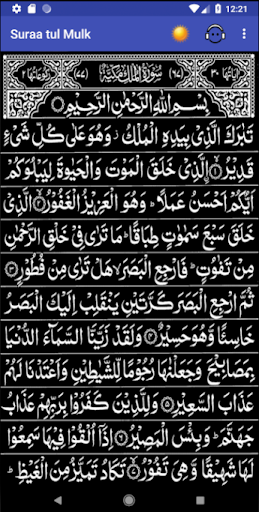 12:21
Suraa tul Mulk
اٰیَاتُهَا ٣٠ (٦٧) سُوْرَةُ الْمُلْكِ مَكِّيَّةٌ (٧٧) رُكُوْعَاتُهَا ٢
بِسْمِ اللّٰهِ الرَّحْمٰنِ الرَّحِيْمِ
تَبٰرَكَ الَّذِيْ بِيَدِهِ الْمُلْكُ وَهُوَ عَلٰى كُلِّ شَيْءٍ
قَدِيْرُۙ۝١ الَّذِيْ خَلَقَ الْمَوْتَ وَالْحَيٰوةَ لِيَبْلُوَكُمْ
اَيُّكُمْ اَحْسَنُ عَمَلًاؕ وَهُوَ الْعَزِيْزُ الْغَفُوْرُۙ۝٢ الَّذِيْ
خَلَقَ سَبْعَ سَمٰوٰتٍ طِبَاقًاؕ مَا تَرٰى فِيْ خَلْقِ الرَّحْمٰنِ
مِنْ تَفٰوُتٍؕ فَارْجِعِ الْبَصَرَۙ هَلْ تَرٰى مِنْ فُطُوْرٍ۝٣
ثُمَّ ارْجِعِ الْبَصَرَ كَرَّتَيْنِ يَنْقَلِبْ اِلَيْكَ الْبَصَرُ
خَاسِئًا وَّهُوَ حَسِيْرٌ۝٤ وَلَقَدْ زَيَّنَّا السَّمَآءَ الدُّنْيَا
بِمَصَابِيْحَ وَجَعَلْنٰهَا رُجُوْمًا لِّلشَّيٰطِيْنِ وَاَعْتَدْنَا لَهُمْ
عَذَابَ السَّعِيْرِ۝٥ وَلِلَّذِيْنَ كَفَرُوْا بِرَبِّهِمْ عَذَابُ
جَهَنَّمَؕ وَبِئْسَ الْمَصِيْرُ۝٦ اِذَآ اُلْقُوْا فِيْهَا سَمِعُوْا
لَهَا شَهِيْقًا وَّهِيَ تَفُوْرُۙ۝٧ تَكَادُ تَمَيَّزُ مِنَ الْغَيْظِؕ